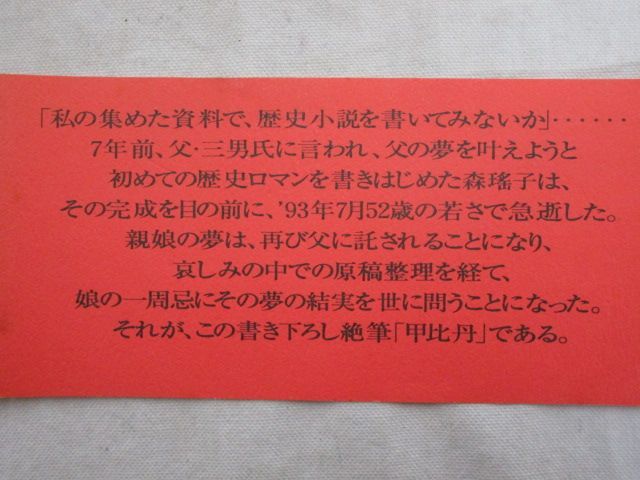 「私の集めた資料で、歴史小説を書いてみないか」‥‥‥
7年前、父・三男氏に言われ、父の夢を叶えようと
初めての歴史ロマンを書きはじめた森瑤子は、
その完成を目の前に、'93年7月52歳の若さで急逝した。
親娘の夢は、再び父に託されることになり、
哀しみの中での原稿整理を経て、
娘の一周忌にその夢の結実を世に問うことになった。
それが、この書き下ろし絶筆「甲比丹」である。